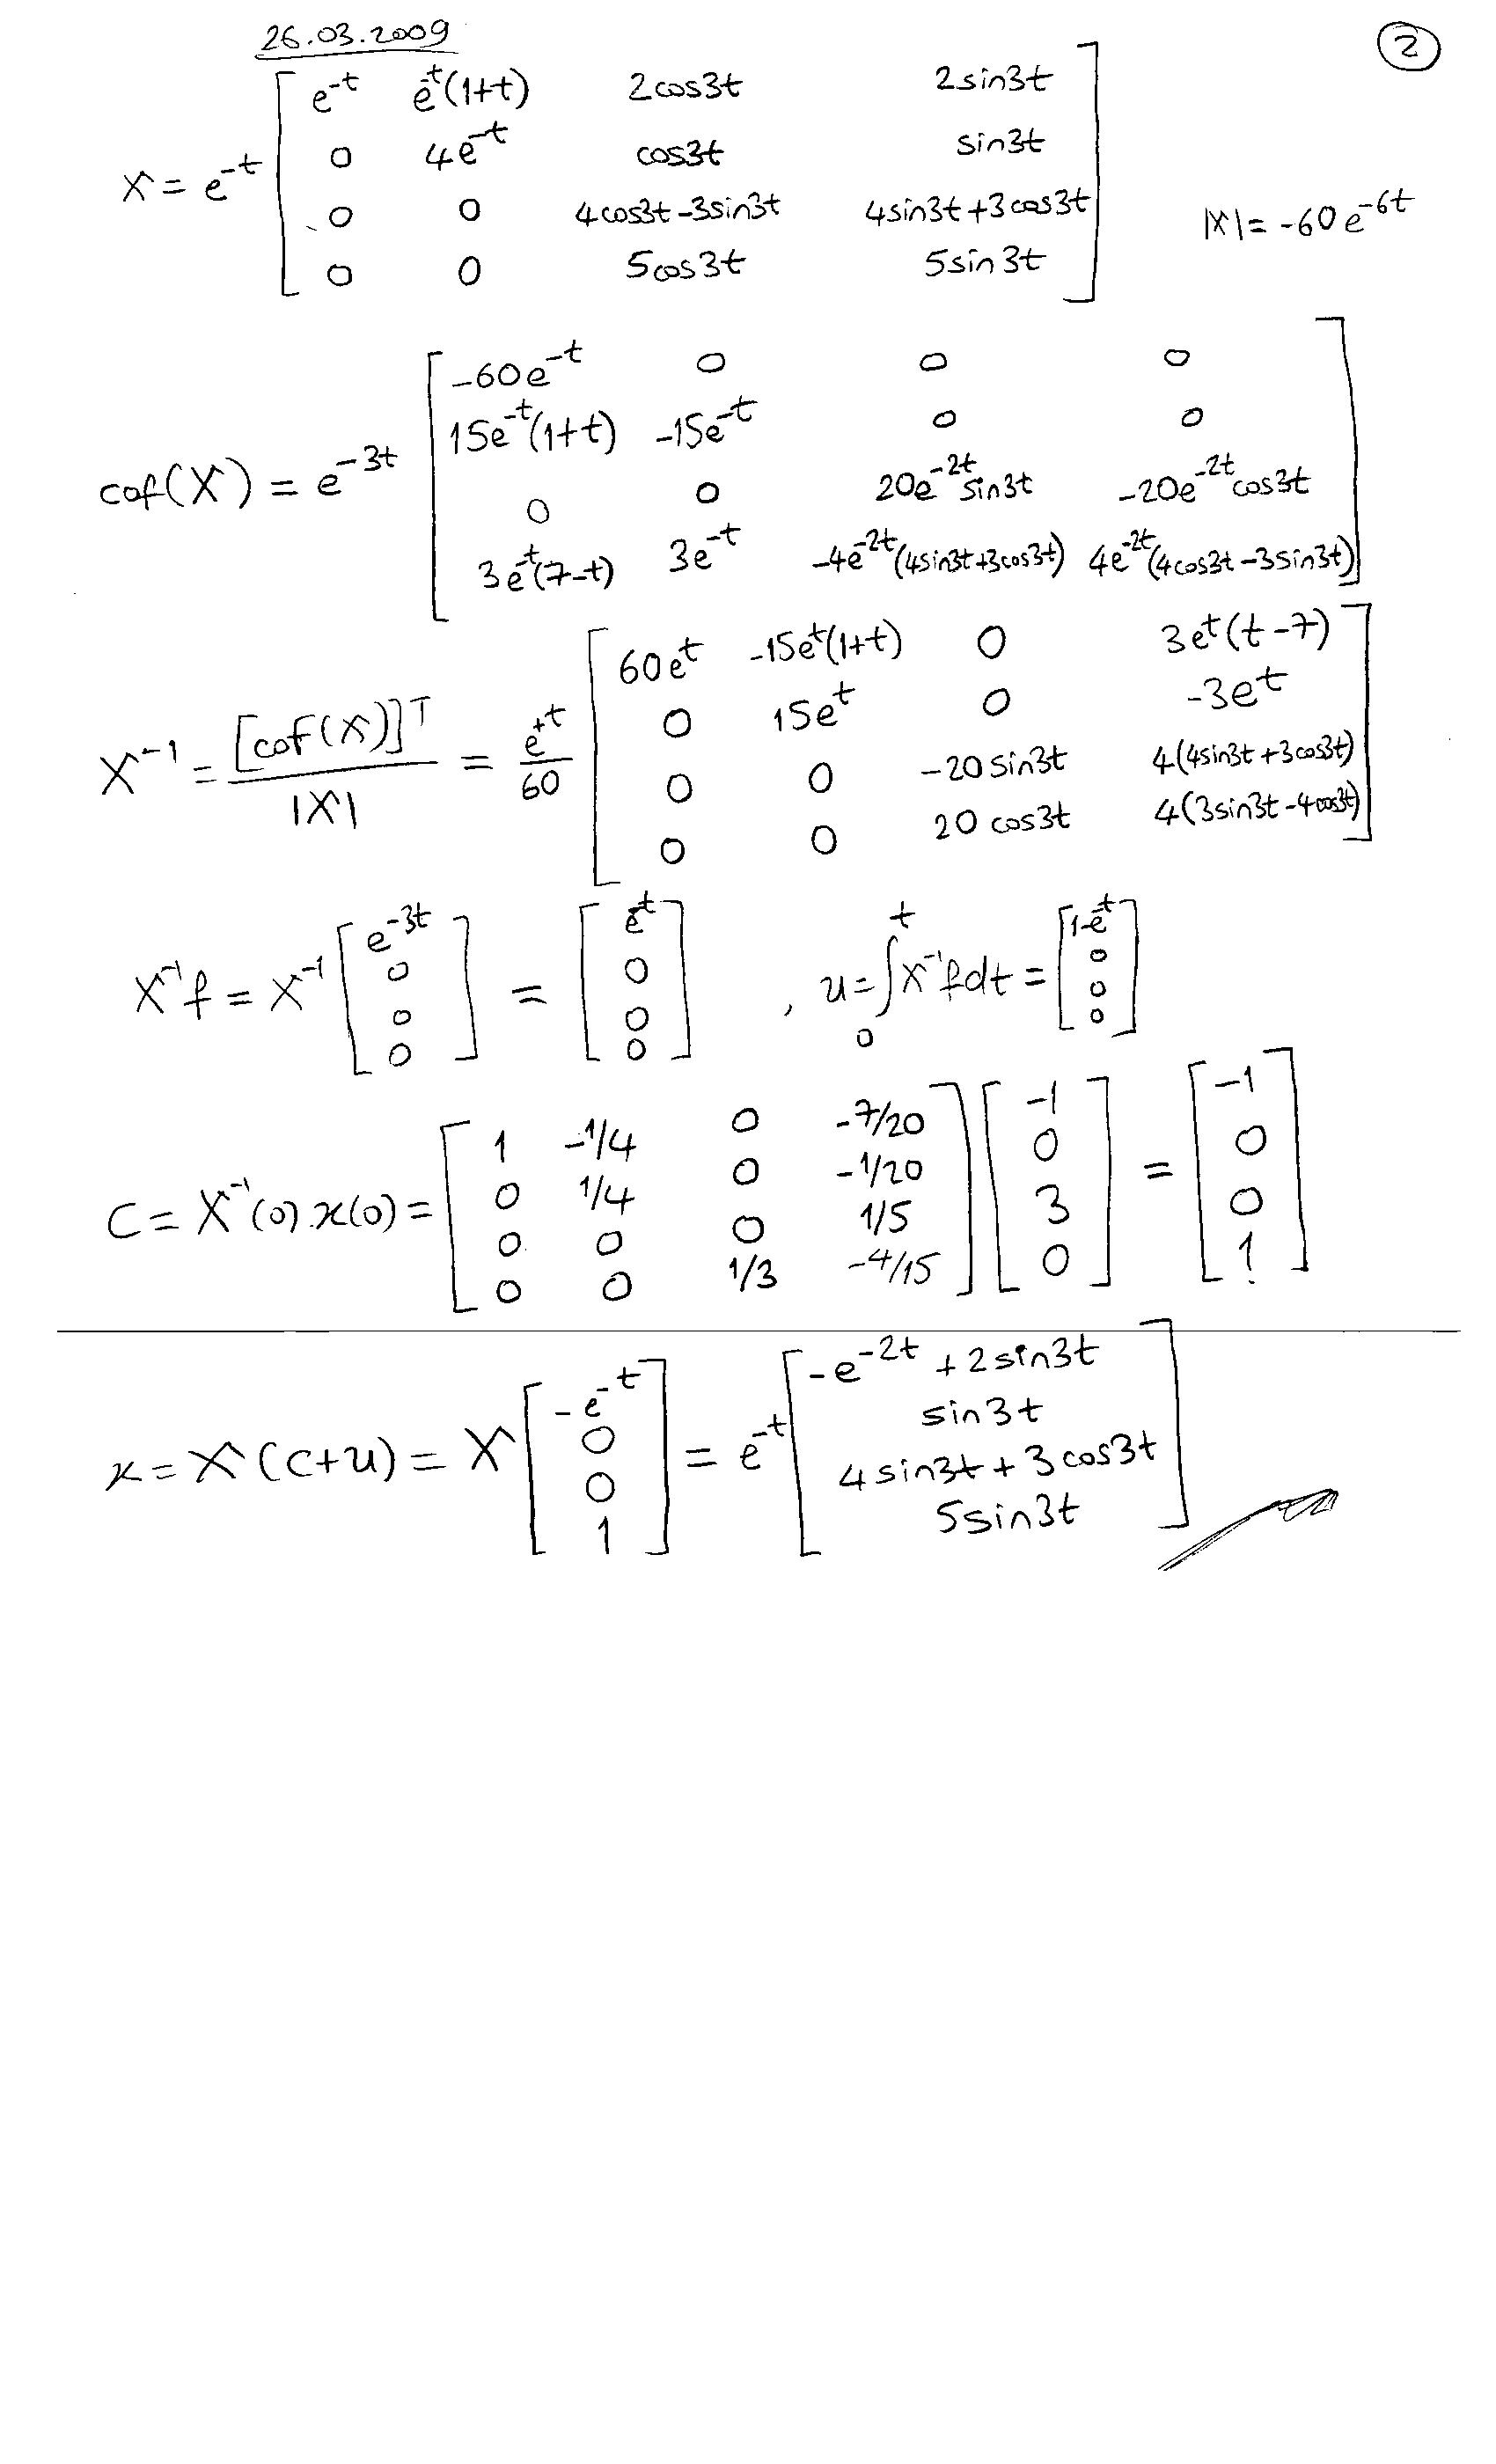 26.03.2009
②
X = e^{-t} [ e^{-t}  e^{-t}(1+t)  2cos3t  2sin3t
0  4e^{-t}  cos3t  sin3t
0  0  4cos3t-3sin3t  4sin3t+3cos3t
0  0  5cos3t  5sin3t ]
|X| = -60e^{-6t}
cof(X) = e^{-3t} [ -60e^{-t}  0  0  0
15e^{-t}(1+t)  -15e^{-t}  0  0
0  0  20e^{-2t}sin3t  -20e^{-2t}cos3t
3e^{-t}(7-t)  3e^{-t}  -4e^{-2t}(4sin3t+3cos3t)  4e^{-2t}(4cos3t-3sin3t) ]
X^{-1} = [cof(X)]^T / |X| = e^{+t}/60 [ 60e^t  -15e^t(1+t)  0  3e^t(t-7)
0  15e^t  0  -3e^t
0  0  -20sin3t  4(4sin3t+3cos3t)
0  0  20cos3t  4(3sin3t-4cos3t) ]
X^{-1}f = X^{-1} [ e^{-3t} 0 0 0 ] = [ e^{-t} 0 0 0 ] , u = ∫_0^t X^{-1}fdt = [ 1-e^{-t} 0 0 0 ]
C = X^{-1}(0).x(0) = [ 1  -1/4  0  -7/20
0  1/4  0  -1/20
0  0  0  1/5
0  0  1/3  -4/15 ] [ -1 0 3 0 ] = [ -1 0 0 1 ]
x = X(C+u) = X [ -e^{-t} 0 0 1 ] = e^{-t} [ -e^{-2t}+2sin3t
sin3t
4sin3t+3cos3t
5sin3t ]